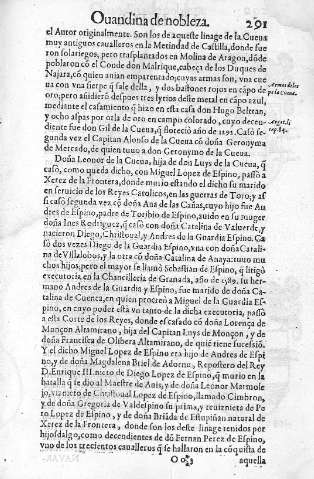 Ouandina de nobleza. 291
el Autor originalmente. Son los de aqueste linage de la Cueua
muy antiguos caualleros en la Merindad de Castilla, donde fue
ron solariegos, pero trasplantados en Molina de Aragon, dõde
poblaron cõ el Conde don Malrique, cabeça de los Duques de
Najara, cõ quien anian emparentado, cuyas armas son, vna cue
ua con vna sierpe q̃ sale della, y dos bastones rojos en cãpo de
oro, pero añidierõ despues tres lyrios deste metal en cãpo azul,
mediante el casamiento q̃ hizo en esta casa don Hugo Beltran,
y ocho aspas por orla de oro en campo colorado, cuyo decen-
diente fue don Gil de la Cueua, q̃ floreció año de 1291. Casó se-
gunda vez el Capitan Alonso de la Cueua cõ doña Geronyma
de Mercado, de quien tuuo a don Geronymo de la Cueua.
Doña Leonor de la Cueua, hija de don Luys de la Cueua, q̃
casó, como queda dicho, con Miguel Lopez de Espino, passó a
Xerez de la Frontera, donde murio estando el dicho su marido
en seruicio de los Reyes Catolicos, en las guerras de Toro; y as
si casó segunda vez cõ doña Ana de las Cañas, cuyo hijo fue An
dres de Espino, padre de Toribio de Espino, auido en su muger
doña Ines Rodriguez, q̃ casó con doña Catalina de Valuerde, y
nacieron, Diego, Christoual, y Andres de la Guardia Espino. Ca
só dos vezes Diego de la Guardia Espino, vna con doña Catali-
na de Villalobos, y la otra cõ doña Catalina de Anaya: tuuo mu
chos hijos, pero el mayor se llamó Sebastian de Espino, q̃ litigó
executoria en la Chancilleria de Granada, año de 1589. Su her-
mano Andres de la Guardia y Espino, fue marido de doña Ca-
talina de Cuenca, en quien procreó a Miguel de la Guardia Es-
pino, en cuyo poder está vn tanto de la dicha executoria, passó
a esta Corte de los Reyes, donde es casado cõ doña Lorença de
Monçon Altamirano, hija del Capitan Luys de Monçon, y de
doña Francisca de Olibera Altamirano, de quié tiene sucession.
Y el dicho Miguel Lopez de Espino era hijo de Andres de Espi
no, y de doña Magdalena Briel de Adorne, Repostero del Rey
D. Enrique III. nieto de Diego Lopez de Espino, q̃ murio en la
batalla q̃ se dio al Maestre de Auis, y de doña Leonor Marmole
jo, visnieto de Christoual Lopez de Espino, llamado Cimbron,
y de doña Gregoria de Valdespino su prima, y rebiznieto de Pe
dro Lopez de Espino, y de doña Brīida de Estupiñan natural de
Xerez de la Frontera, donde son los deste linage tenidos por
hijosdalgo, como decendientes de dõ Fernan Perez de Espino,
vno de los trecientos caualleros q̃ se hallaron en la cõquista de
aquella